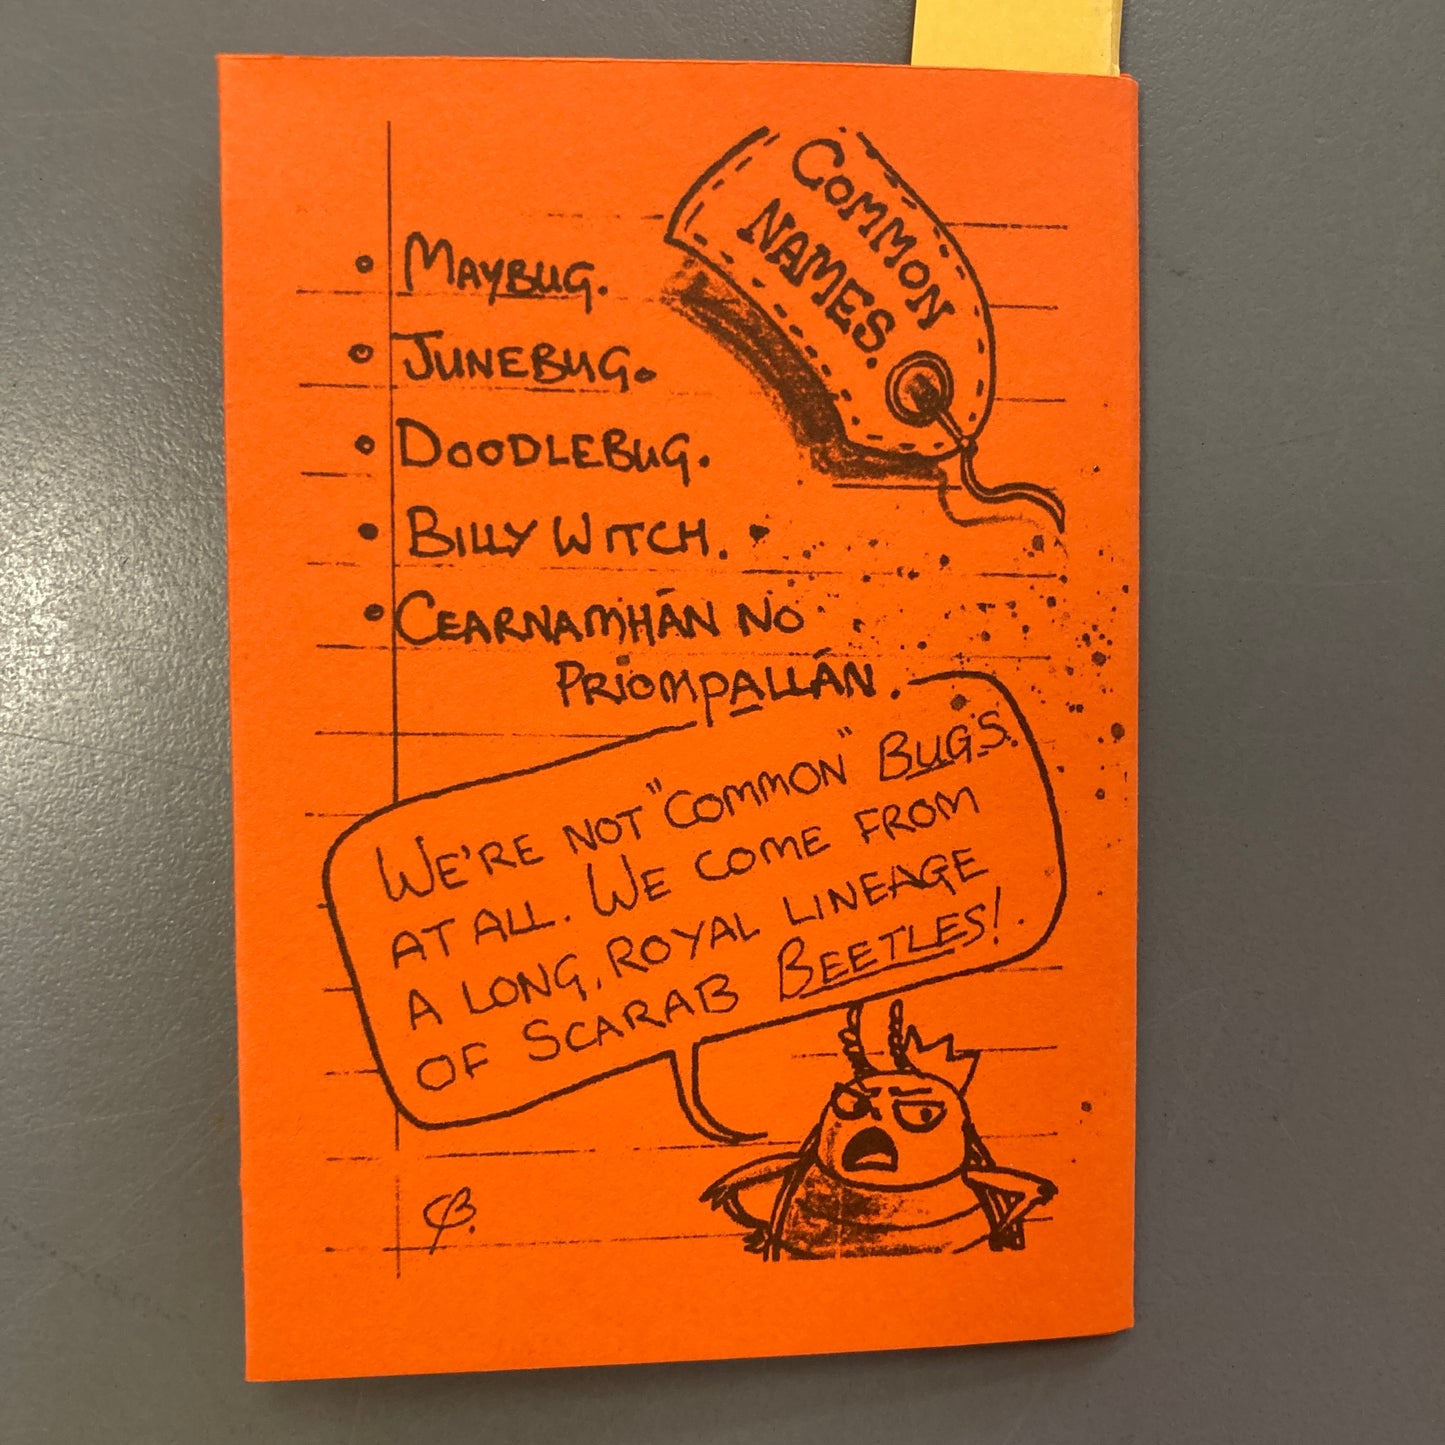 COMMON
NAMES.
• MAYBUG.
• JUNEBUG.
• DOODLEBUG.
• BILLY WITCH.
• CEARNAMHÁN NO
PRIOMPALLÁN.
WE'RE NOT "COMMON" BUGS
AT ALL. WE COME FROM
A LONG, ROYAL LINEAGE
OF SCARAB BEETLES!
CB.